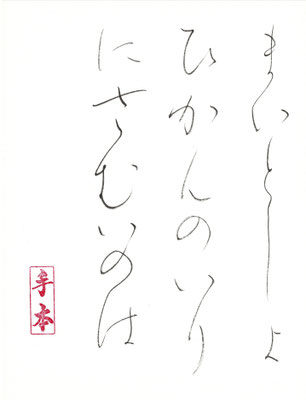 まいとしよ
ひかんのいり
にさむいのは
手本